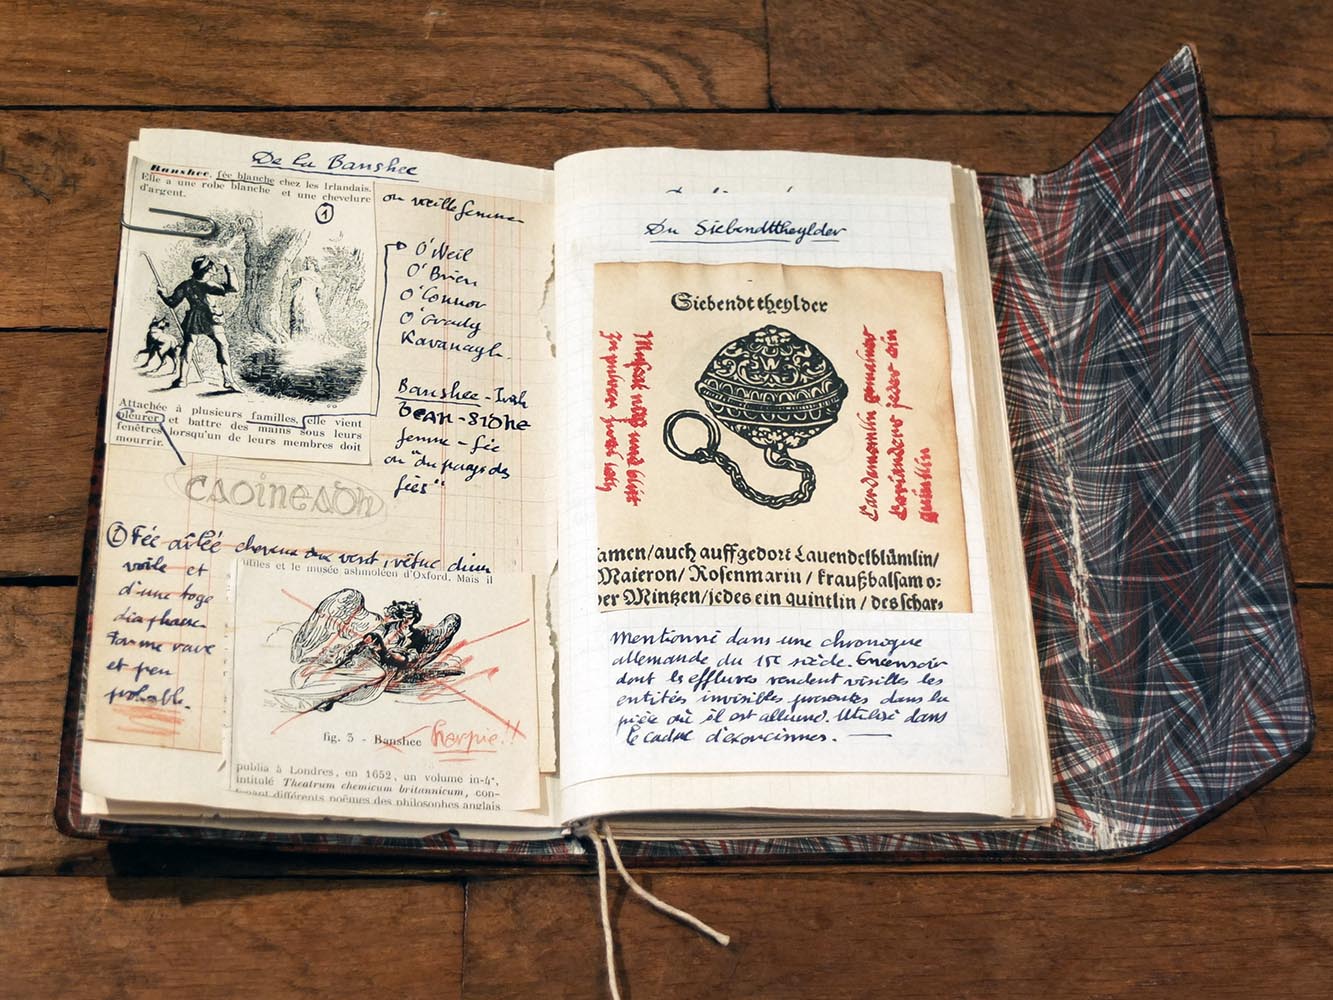 De la Banshee
Banshee, fée blanche chez les Irlandais.
Elle a une robe blanche et une chevelure
d'argent.
1
ou vieille femme
O'Neil
O'Brien
O'Connor
O'Grady
Kavanagh.
Attachée à plusieurs familles, elle vient
pleurer et battre des mains sous leurs
fenêtres lorsqu'un de leurs membres doit
mourrir.
Banshee - Irish
bean-sidhe
femme - fée
ou "du pays des
fées"
caoineadh
2 Fée ailée cheveux au vent, vêtue d'un
voile et
d'une toge
diaphane
forme rare
et peu
probable.
et le musée ashmoléen d'Oxford. Mais il
fig. 3 - Banshee Harpie!!
publia à Londres, en 1652, un volume in-4°,
intitulé Theatrum chemicum britannicum, con-
tenant différents poèmes des philosophes anglais
Du Siebendttheylder
Siebendttheylder
Muscat
und
Cardemomlin
Coriander jedes ein
quintlin
amen/auch auffgedort Lauendelblümlin/
Maieron/ Rosenmarin / kraußbalsam o-
der Mintzen/jedes ein quintlin / des schar-
Mentionné dans une chronique
allemande du 15e siècle. Encensoir
dont les effluves rendent visibles les
entités invisibles présentes dans la
pièce où il est allumé. Utilisé dans
le cadre d'exorcismes.